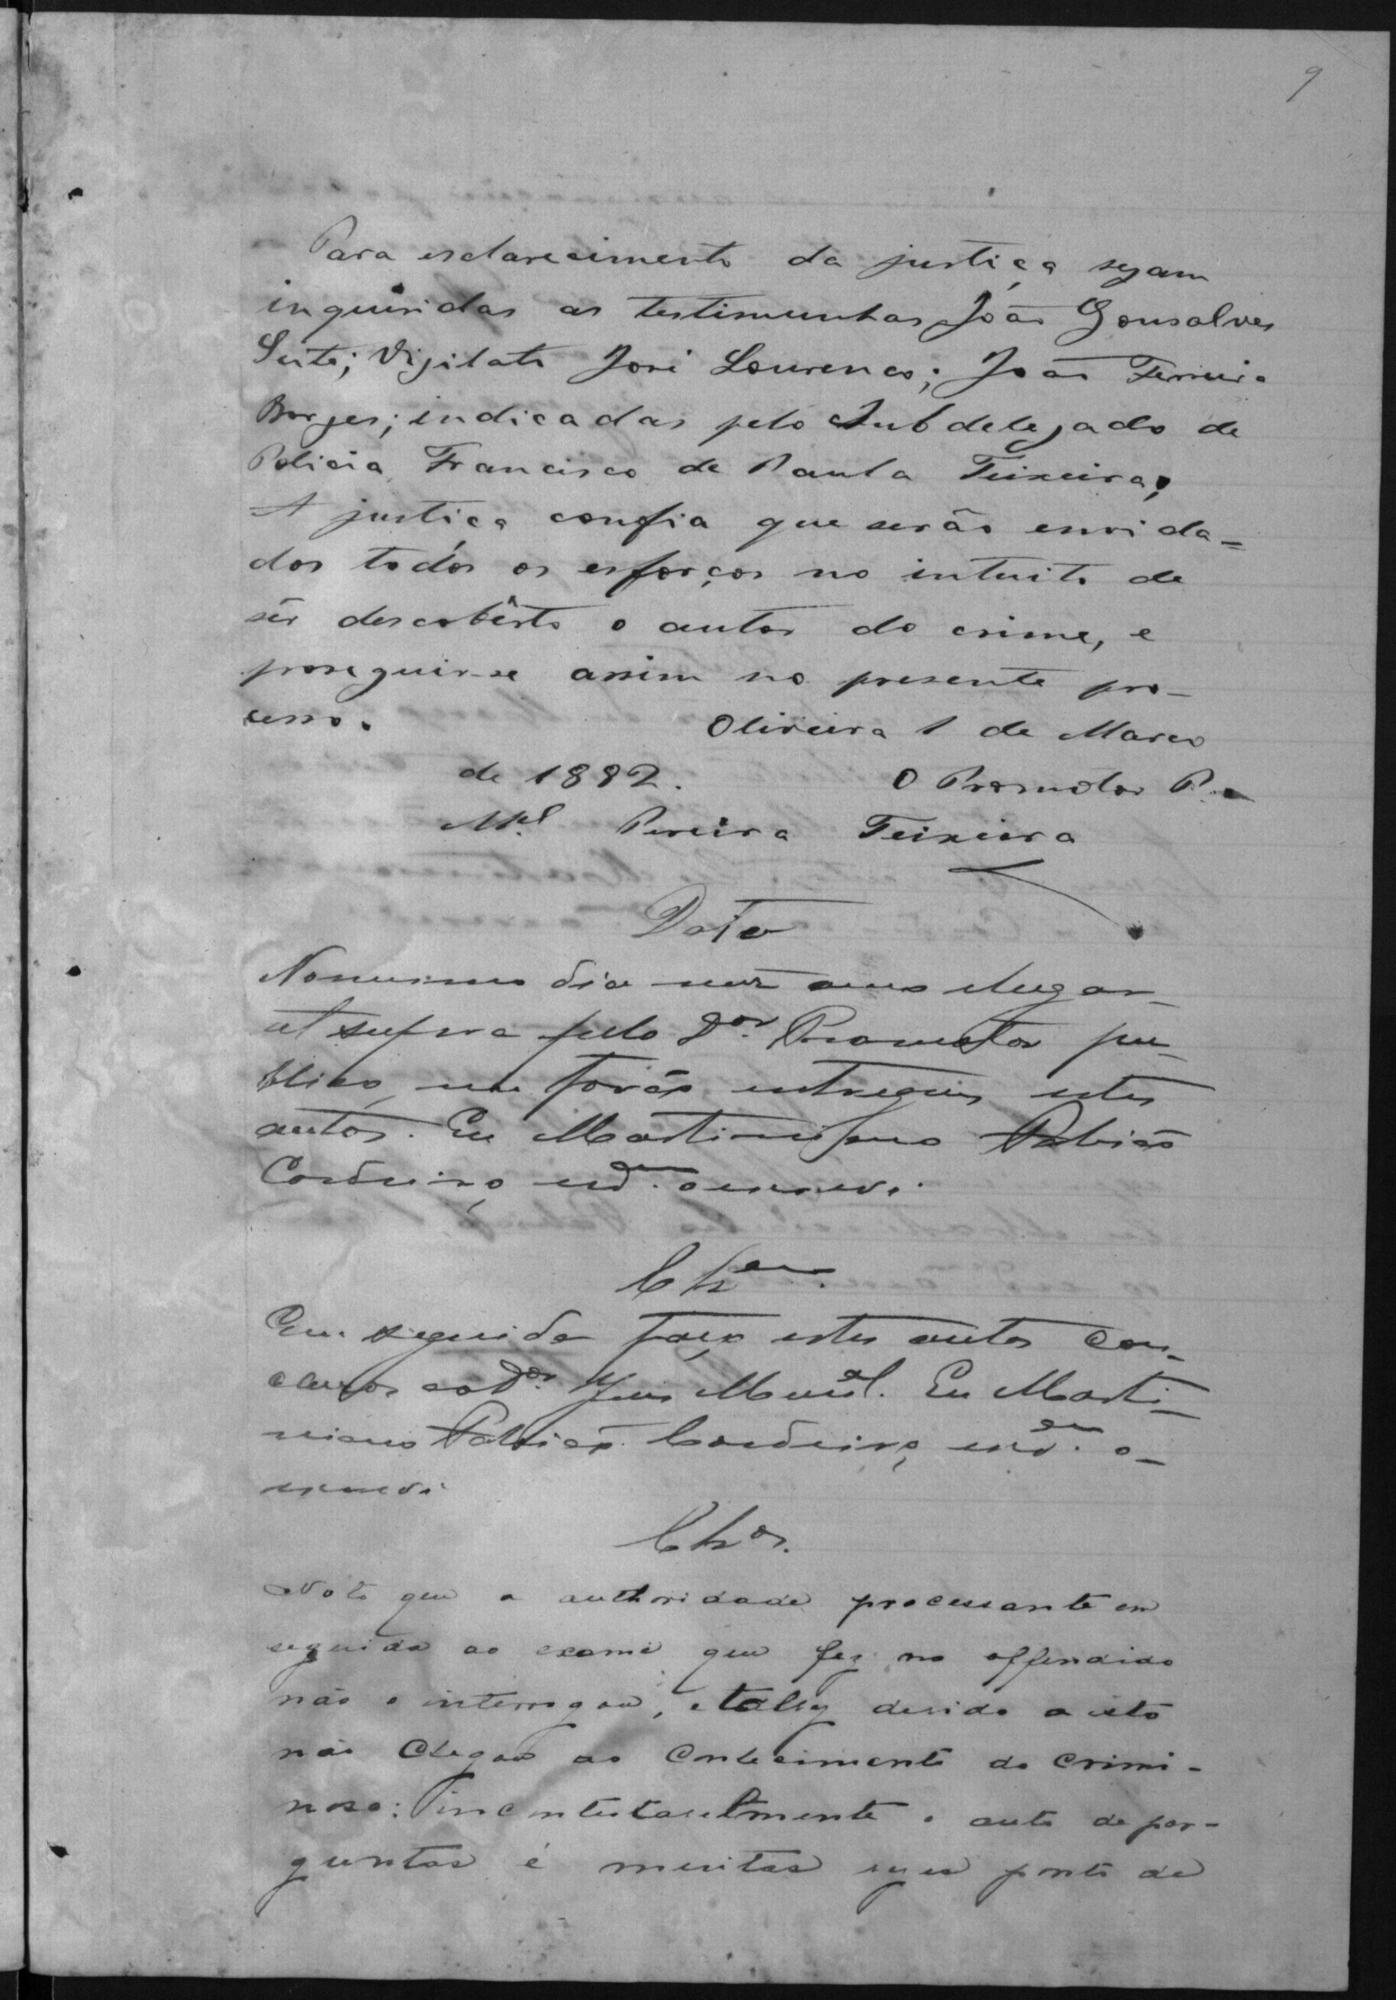 9
Para esclarecimento da justiça sejam
inquiridas as testimunhas João Gonsalves
Leite; Vigilato José Lourenco; João Ferreira
Borges; indicadas pelo Subdelegado de
Policia Francisco de Paula Teixeira;
A justiça confia que serão envida=
dos todos os esforços no intuito de
sêr descobêrto o autor do crime, e
proseguir-se assim no presente pro-
cesso. Oliveira 1 de Março
de 1882. O Promotor P.
Mel Pereira Teixeira
Data
No mesmo dia mez anno e lugar
ut supra pelo Dor. Promotor pu-
blico, me forão entregues estes
autos. Eu Martiniano Fabião
Cordeiro, escam. o escrevi.
Clzam.
Em seguida faço estes autos con-
clusos ao Dor. Juis Munal. Eu Marti-
niano Fabião Cordeiro, escam. o-
escrevi
Clzos.
Noto que a authoridade processante em
seguida ao exame que fez no offendido
não o interrogou, e talvez devido a isto
não chegou ao conhecimento do crimi-
noso: incontestavelmente o auto de per-
guntas é muitas vezes ponto de